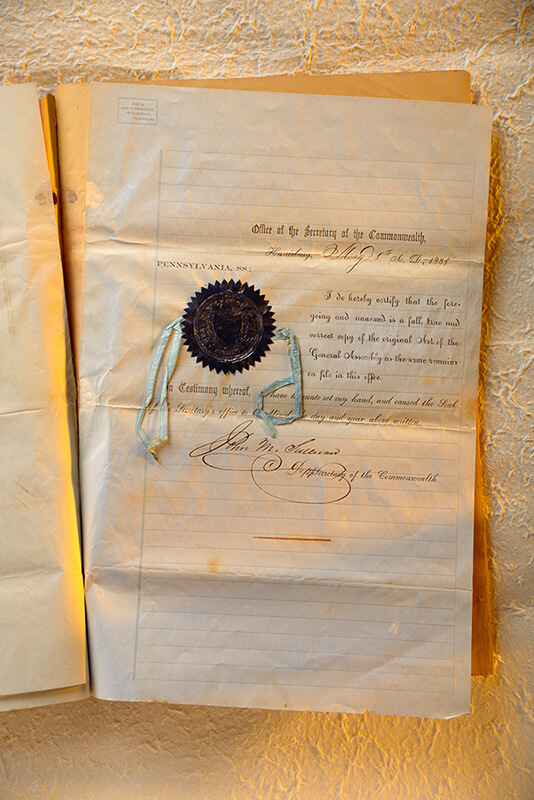 Office of the Secretary of the Commonwealth,
Harrisburg, May 1st A. D., 1851
PENNSYLVANIA, SS:
I do hereby certify that the fore-
going and annexed is a full, true and
correct copy of the original Act of the
General Assembly as the same remains
on file in this office.
In Testimony whereof, I have hereunto set my hand, and caused the Seal
of the Secretary's office to be affixed the day and year above written.
John M. Sullivan
Dep. Secretary of the Commonwealth.